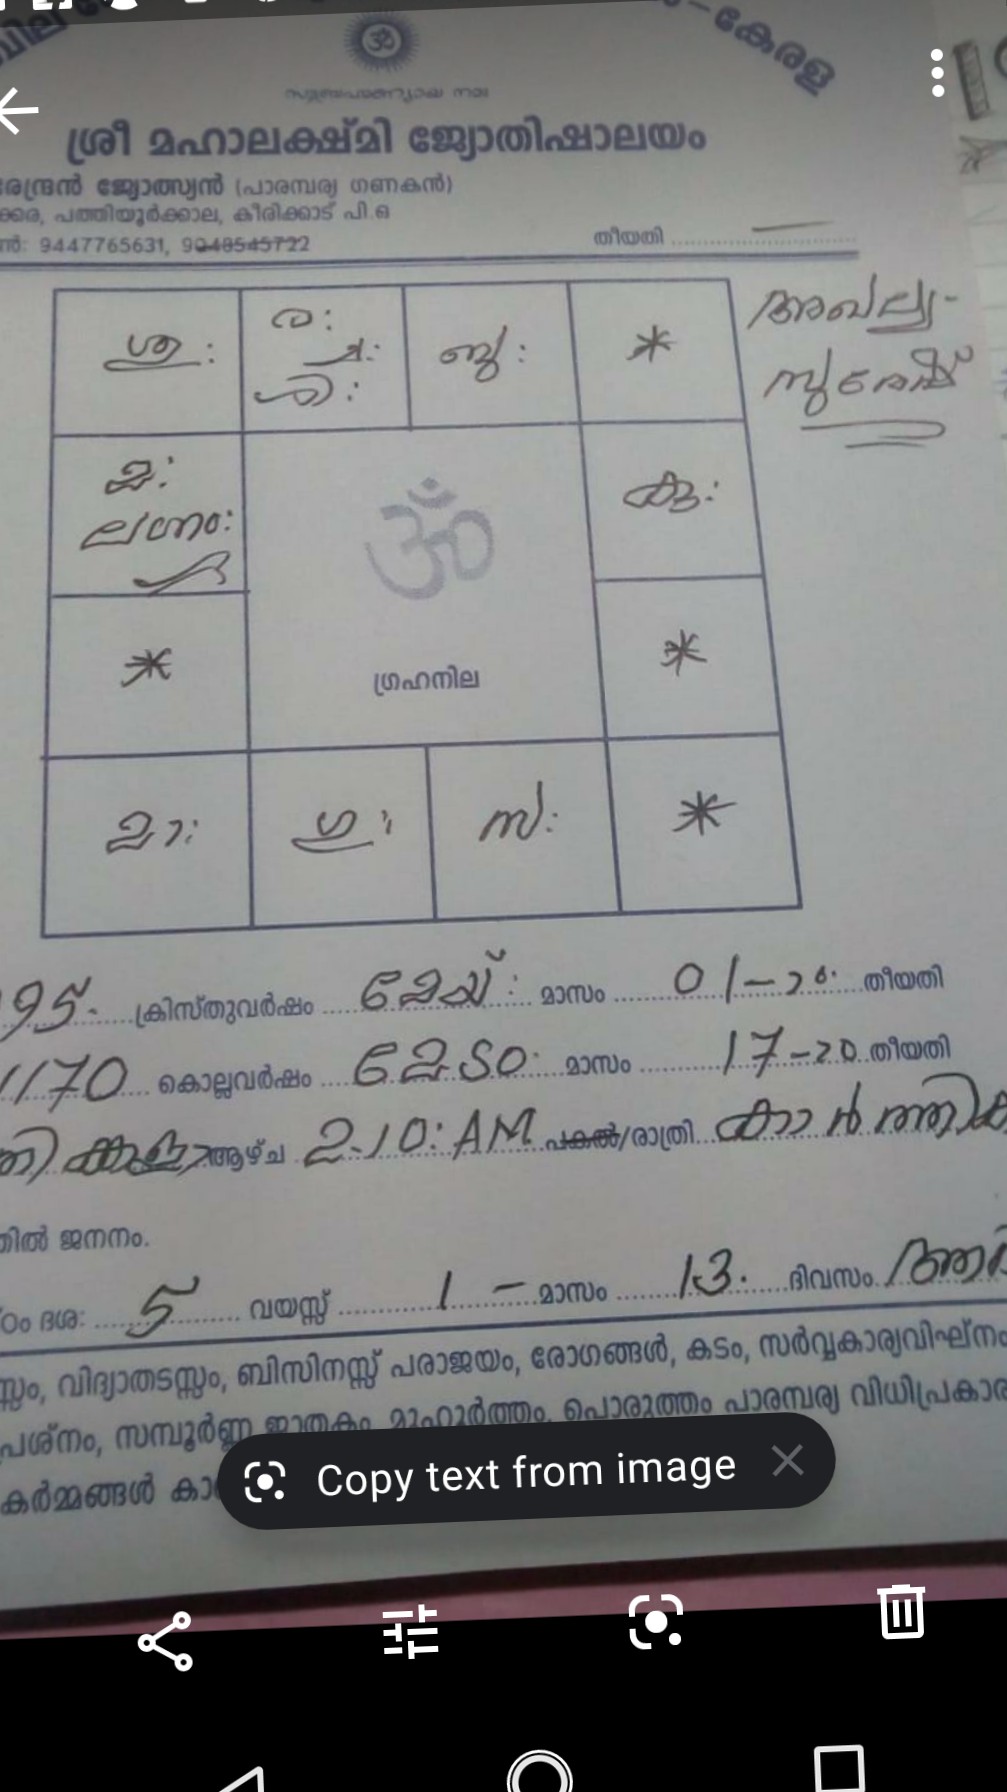 കേരള
ॐ
ശ്രീ മഹാലക്ഷ്മി ജ്യോതിഷാലയം
രേന്ദ്രൻ ജ്യോത്സ്യൻ (പാരമ്പര്യ ഗണകൻ)
ക്കര, പത്തിയൂർക്കാല, കീരിക്കാട് പി.ഒ
ൺ: 9447765631, 9048545722
തീയതി
ര:
ബു:
സുരേഷ്
കു:
മ:
ലഗ്നം:
ॐ
ഗ്രഹനില
മാ:
ഗു:
സ:
95. ക്രിസ്തുവർഷം മേയ്: മാസം 01-ാം തീയതി
1170 കൊല്ലവർഷം മേടം മാസം 17-ാം തീയതി
ആഴ്ച 2.10:AM പകൽ/രാത്രി കാർത്തിക
തിൽ ജനനം.
ദശ: 5 വയസ്സ് 1 - മാസം 13. ദിവസം
സ്സം, വിദ്യാതടസ്സം, ബിസിനസ്സ് പരാജയം, രോഗങ്ങൾ, കടം, സർവ്വകാര്യവിഘ്ന
പ്രശ്നം, സമ്പൂർണ്ണ ജാതകം, മുഹൂർത്തം, പൊരുത്തം പാരമ്പര്യ വിധിപ്രകാര
കർമ്മങ്ങൾ
Copy text from image